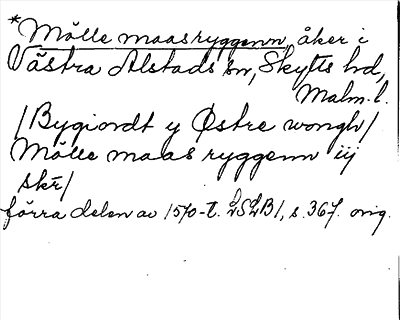 *Mölle maasryggenn, åker i
Västra Alstads sn, Skytts hd,
Malm. l.
/Bygiordt y Østre wongh/
Mölle maas ryggenn iij
skr/
förra delen av 1570-t. LSLB1, s. 367. orig.